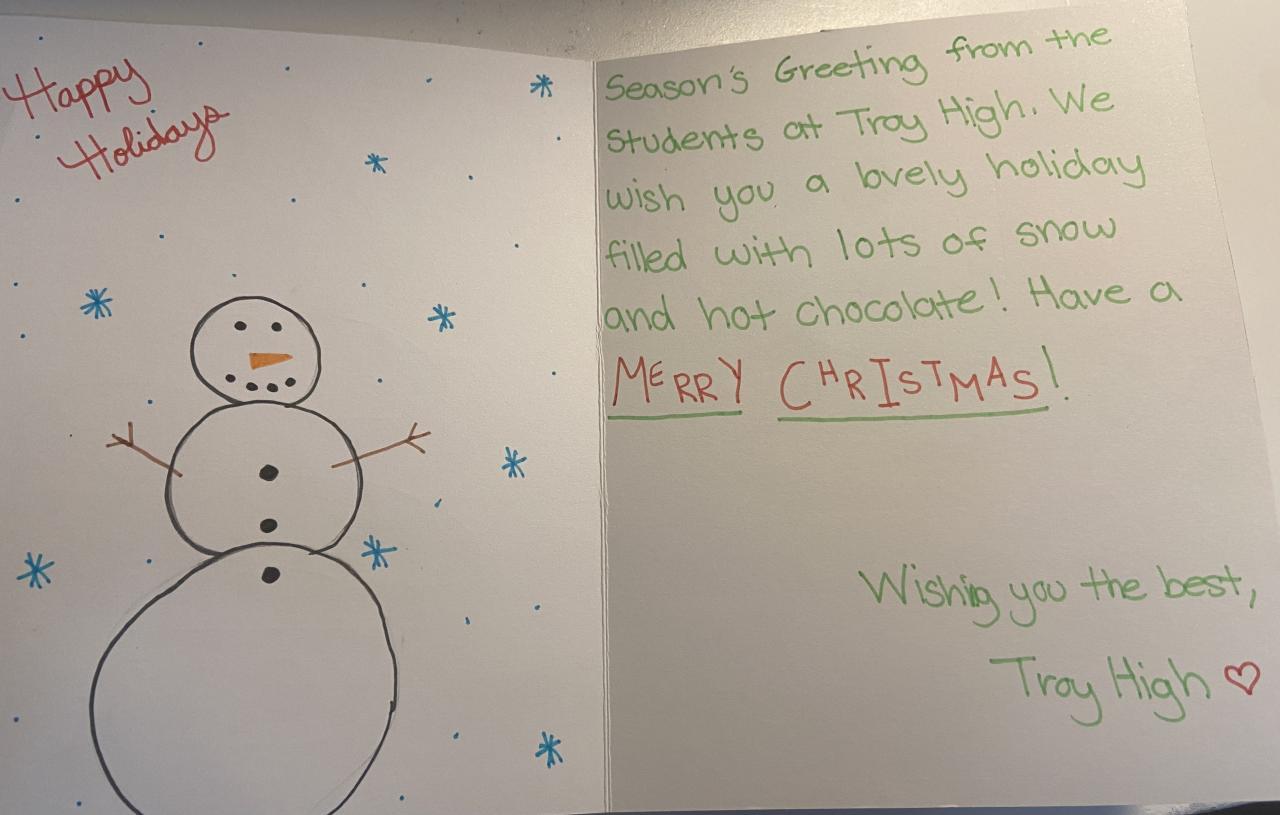 Happy
Holidays
Season's Greeting from the
Students at Troy High. We
wish you a lovely holiday
filled with lots of snow
and hot chocolate! Have a
MERRY CHRISTMAS!
Wishig you the best,
Troy High ♡